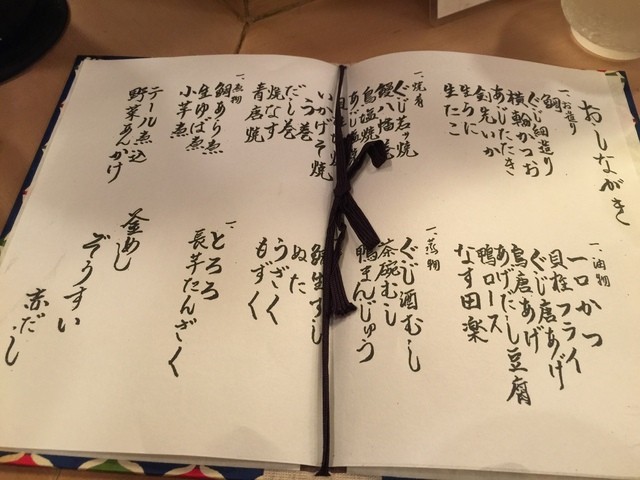 おしながき
一、お造り
鯛
ぐじ細造り
横輪かつお
あじたたき
剣先いか
生うに
生たこ
一、焼肴
ぐじ若狭焼
鰻八幡巻
鳥塩焼
あじ塩焼
いかげそ焼
う巻
だし巻
焼なす
青唐焼
一、煮物
鯛あら煮
生ゆば煮
小芋煮
テール煮込
野菜あんかけ
一、油物
一口かつ
貝柱フライ
ぐじ唐あげ
鳥唐あげ
あげだし豆腐
鴨ロース
なす田楽
一、蒸物
ぐじ酒むし
茶碗むし
鴨まんじゅう
鯖生ずし
ぬた
うざく
もずく
一、とろろ
長芋たんざく
釜めし
ぞうすい
赤だし